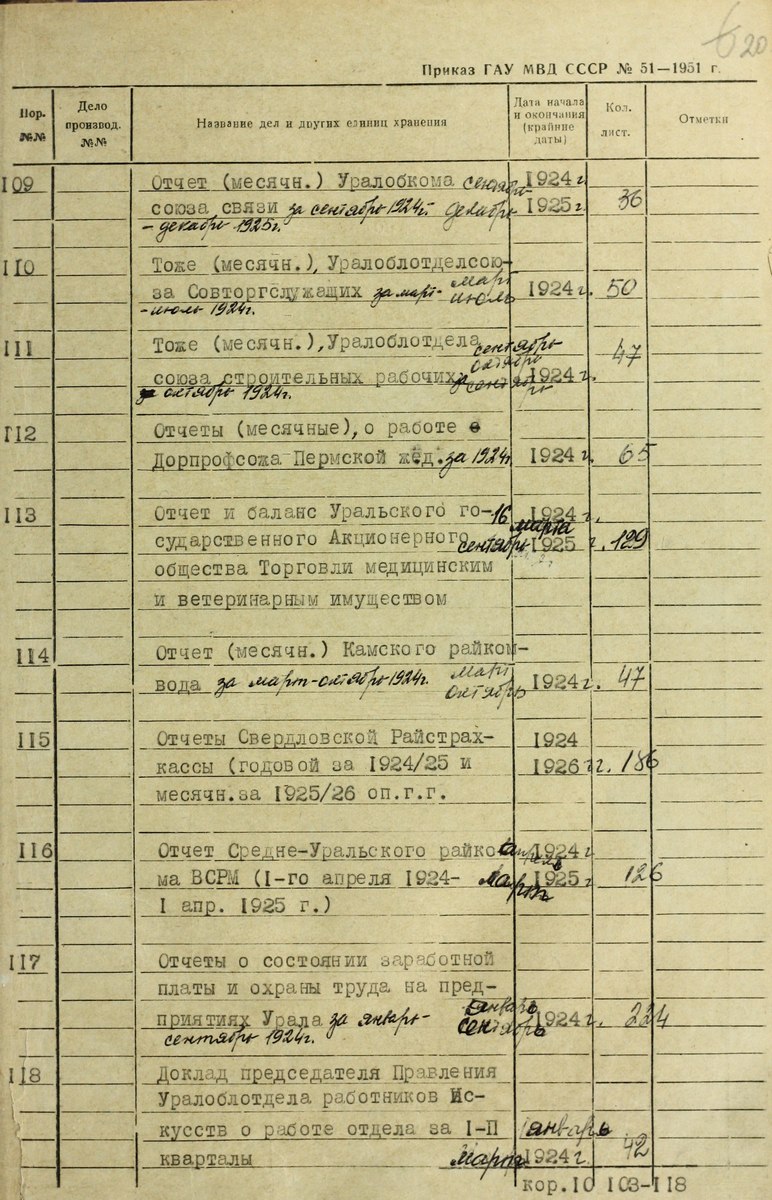 20
Приказ ГАУ МВД СССР № 51—1951 г.
Пор. №№ Дело производ. №№ Название дел и других единиц хранения Дата начала и окончания (крайние даты) Кол. лист. Отметки
109 Отчет (месячн.) Уралобкома сентябрь 1924 г.
союза связи за сентябрь 1924г.- декабрь 1925г. 36
- декабрь 1925г.
110 Тоже (месячн.), Уралоблотделсою-
за Совторгслужащих за март- март июль 1924 г. 50
-июль 1924г.
111 Тоже (месячн.), Уралоблотдела сентябрь 47
союза строительных рабочих за октябрь 1924 г.
за октябрь 1924г.
112 Отчеты (месячные), о работе
Дорпрофсожа Пермской жед. за 1924г. 1924 г. 65
113 Отчет и баланс Уральского го- 16 марта 1924 г.
сударственного Акционерного сентябрь 1925 г. 129
общества Торговли медицинским
и ветеринарным имуществом
114 Отчет (месячн.) Камского райком-
вода за март-октябрь 1924г. март октябрь 1924 г. 47
115 Отчеты Свердловской Райстрах- 1924
кассы (годовой за 1924/25 и 1926 гг. 186
месячн.за 1925/26 оп.г.г.
116 Отчет Средне-Уральского райко- апрель 1924 г
ма ВСРМ (I-го апреля 1924- март 1925 г 126
I апр. 1925 г.)
117 Отчеты о состоянии заработной
платы и охраны труда на пред-
приятиях Урала за январь- январь сентябрь 1924 г. 224
сентябрь 1924г.
118 Доклад председателя Правления
Уралоблотдела работников Ис-
кусств о работе отдела за I-П январь
кварталы март 1924 г 42
кор.10 103-118